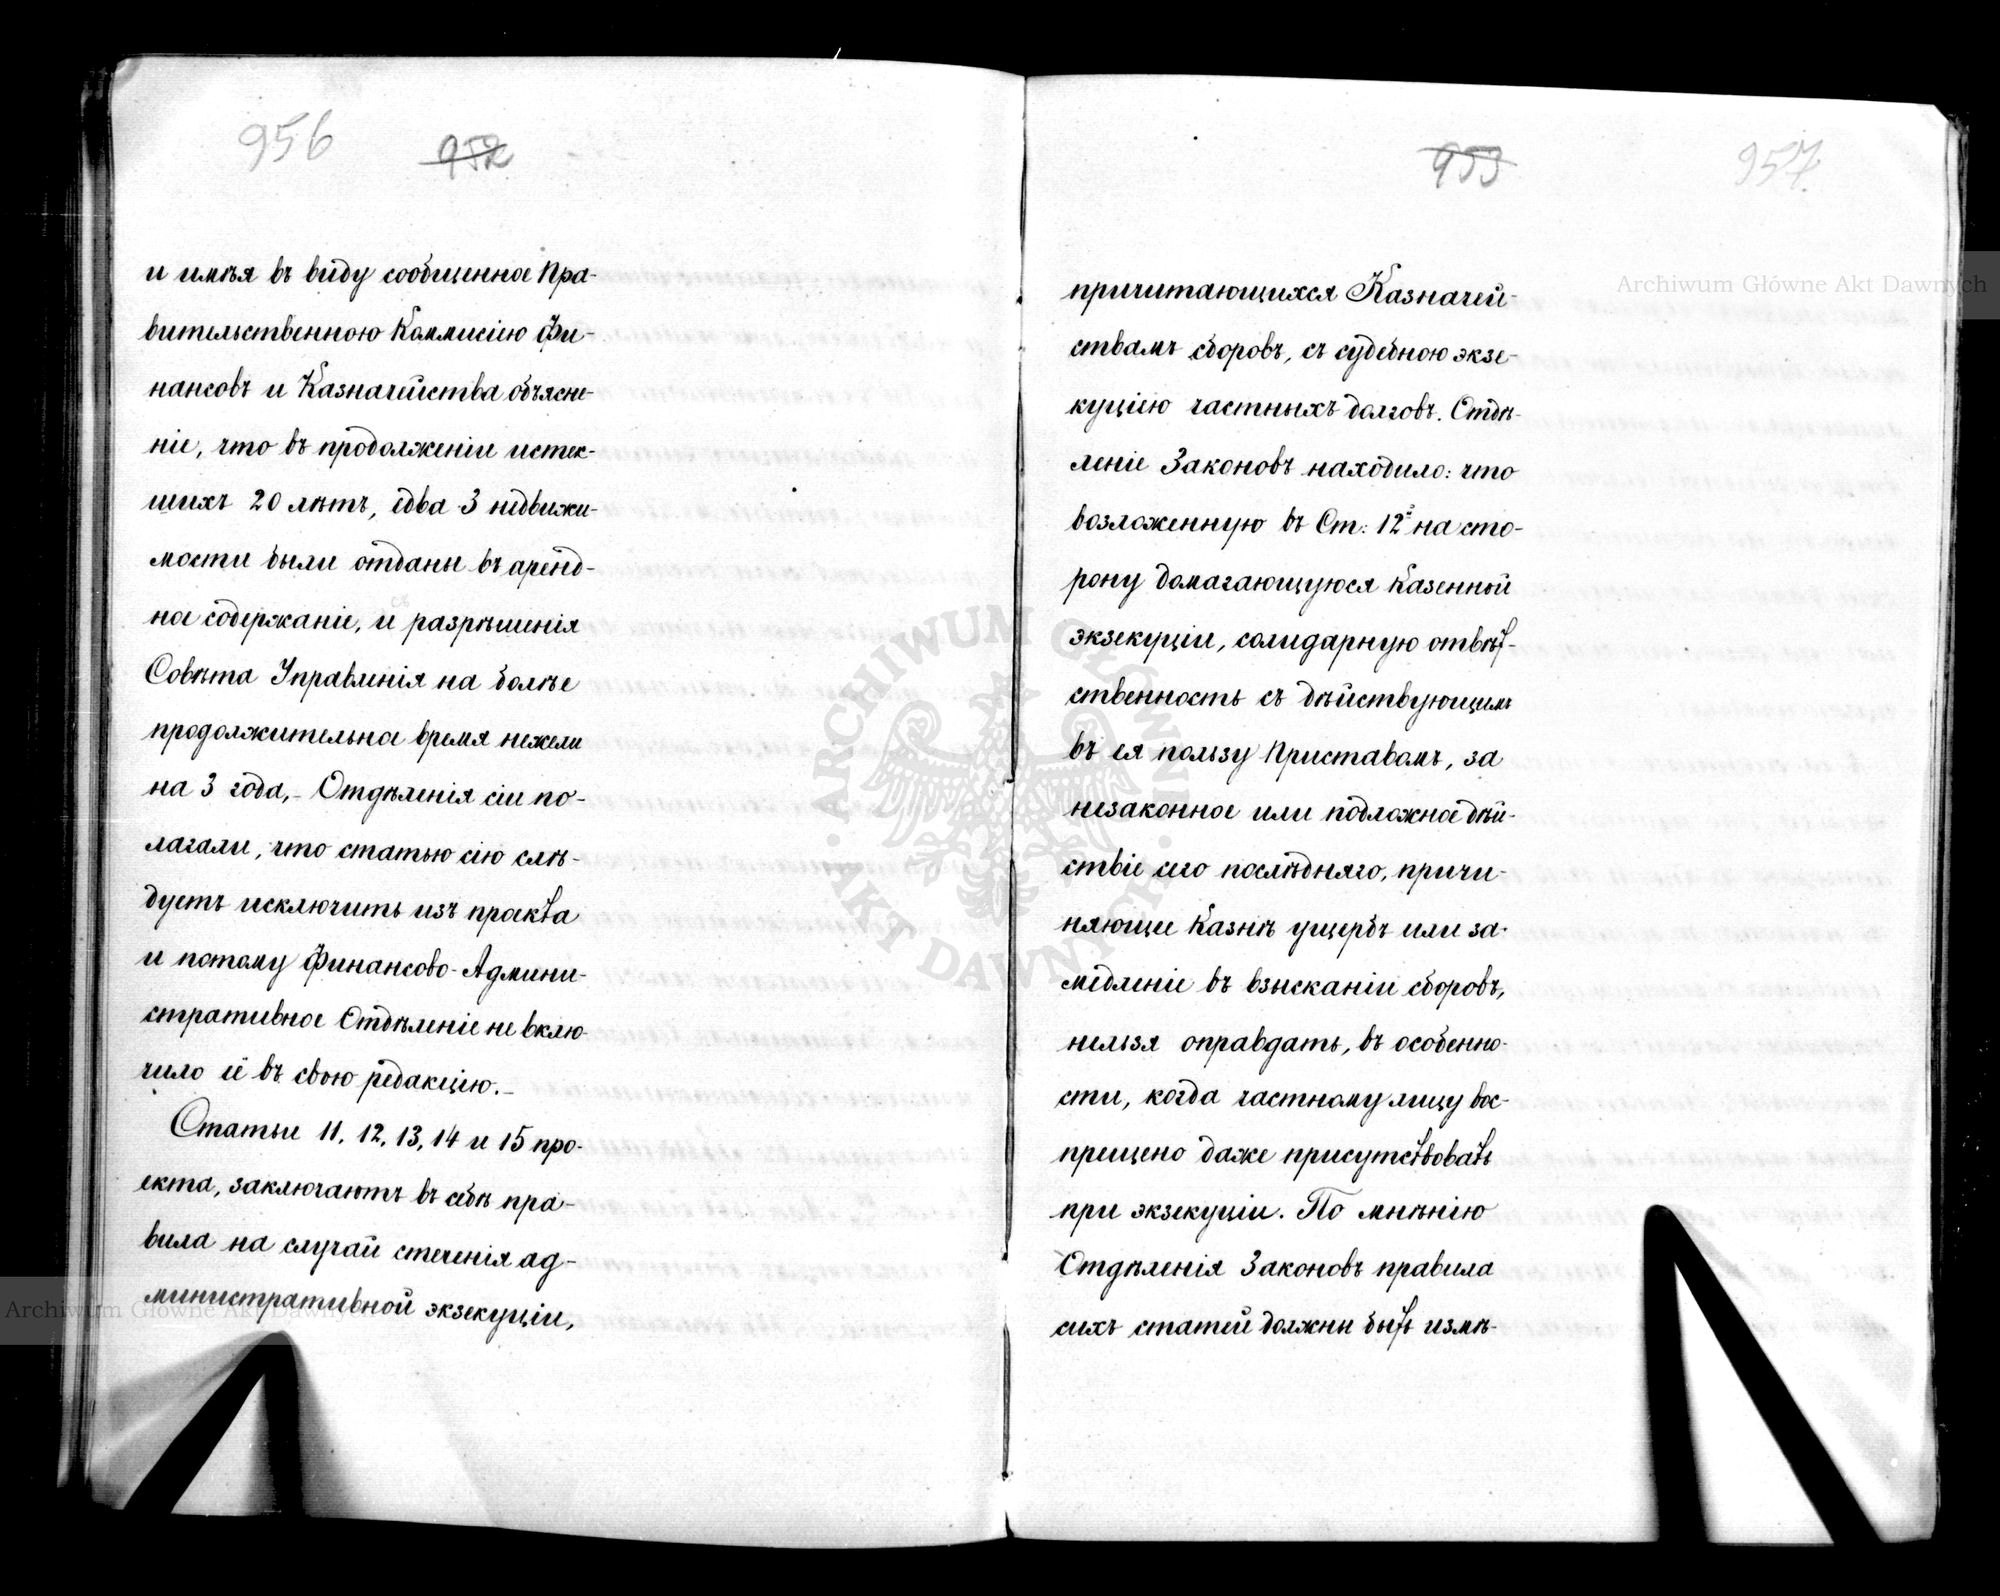 956
952
и имѣя въ виду сообщенное Пра-
вительственною Коммисіею Фи-
нансовъ и Казначейства объясне-
ніе, что въ продолженіи истек-
шихъ 20 лѣтъ, едва 3 недвижи-
мости были отданы въ аренд-
ное содержаніе, и разрѣшенія
Совѣта Управленія на болѣе
продолжительное время нежели
на 3 года,- Отдѣленія сіи по-
лагали, что статью сію слѣ-
дуетъ исключить изъ проэкта
и потому Финансово-Админи-
стративное Отдѣленіе не вклю-
чило её въ свою редакцію.-
Статьи 11, 12, 13, 14 и 15 про-
екта, заключаютъ въ себѣ пра-
вила на случай стеченія ад-
министративной экзекуціи,
953
957
причитающихся Казначей-
ствамъ сборовъ, съ судебною экзе-
куціею частныхъ долговъ. Отдѣ-
леніе Законовъ находило: что
возложенную въ Ст: 12й на сто-
рону домагающуюся казенной
экзекуціи, солидарную отвѣт-
ственность съ дѣйствующимъ
въ ея пользу Приставомъ, за
незаконное или подложное дѣй-
ствіе сего послѣдняго, причи-
няющее Казнѣ ущербъ или за-
медленіе въ взысканіи сборовъ,
нельзя оправдать, въ особенно-
сти, когда частному лицу вос-
прещено даже присутствовать
при экзекуціи. По мнѣнію
Отдѣленія Законовъ правила
сихъ статей должны быть измѣ-
Archiwum Główne Akt Dawnych
Archiwum Główne Akt Dawnych
ARCHIWUM GŁÓWNE · AKT DAWNYCH ·